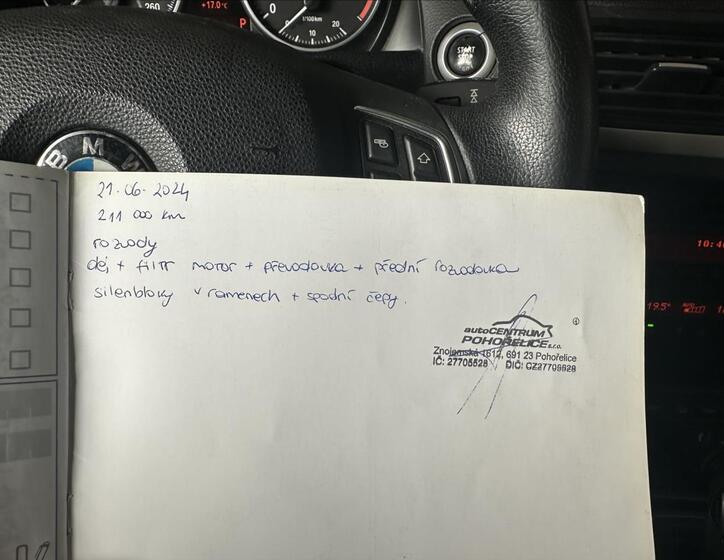 260
+17.0°C
P
0
l/100km
10
20
START
STOP
BMW
21.06.2024
211 000 km
rozvody
olej + filtr motor + převodovka + přední rozvodovka
silenbloky v ramenech + spodní čepy.
autoCENTRUM
POHOŘELICE s.r.o.
Znojemská 1612, 691 23 Pohořelice
IČ: 27705528 DIČ: CZ27705528
10:4
19.5°
AUTO